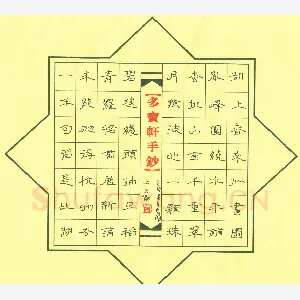 湖上春來似畫圖
亂峰圍繞水平鋪
松排山面千重翠
月點波心一顆珠
多寶軒手鈔
碧毯線頭抽早稻
青羅裙帶展新蒲
未能拋得杭州去
一半勾留是此湖